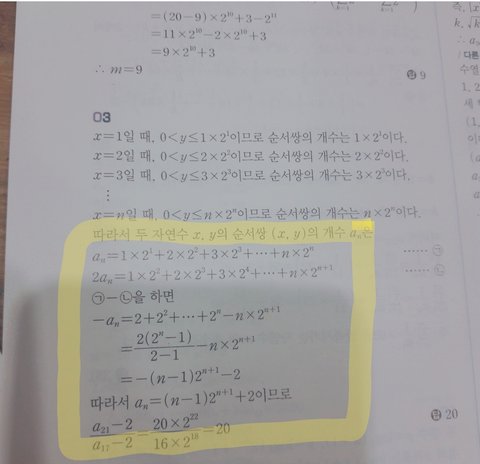 =(20-9)×2¹⁰+3-2¹¹
=11×2¹⁰-2×2¹⁰+3
=9×2¹⁰+3
∴ m=9
답 9
03
x=1일 때, 0<y≤1×2¹이므로 순서쌍의 개수는 1×2¹이다.
x=2일 때, 0<y≤2×2²이므로 순서쌍의 개수는 2×2²이다.
x=3일 때, 0<y≤3×2³이므로 순서쌍의 개수는 3×2³이다.
⋮
x=n일 때, 0<y≤n×2ⁿ이므로 순서쌍의 개수는 n×2ⁿ이다.
따라서 두 자연수 x, y의 순서쌍 (x, y)의 개수 aₙ은
aₙ=1×2¹+2×2²+3×2³+⋯+n×2ⁿ ⋯⋯ ㉠
2aₙ=1×2²+2×2³+3×2⁴+⋯+n×2ⁿ⁺¹ ⋯⋯ ㉡
㉠-㉡을 하면
-aₙ=2+2²+⋯+2ⁿ-n×2ⁿ⁺¹
=2(2ⁿ-1)/(2-1)-n×2ⁿ⁺¹
=-(n-1)2ⁿ⁺¹-2
따라서 aₙ=(n-1)2ⁿ⁺¹+2이므로
(a₂₁-2)/(a₁₇-2)=(20×2²²)/(16×2¹⁸)=20
답 20